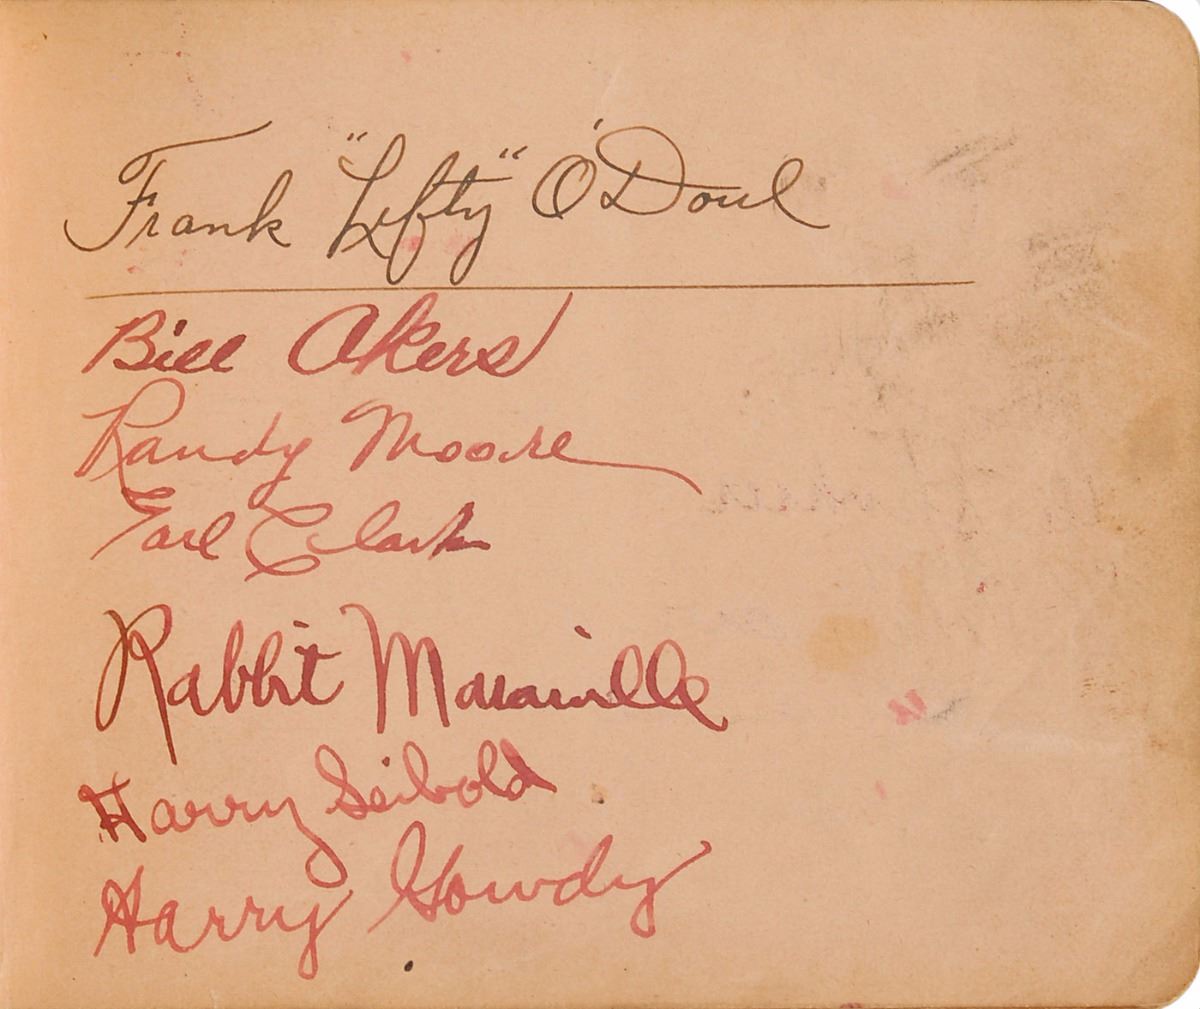 Frank "Lefty" O'Doul
Bill Akers
Randy Moore
Earl Clark
Rabbit Maranville
Harry Seibold
Harry Gowdy